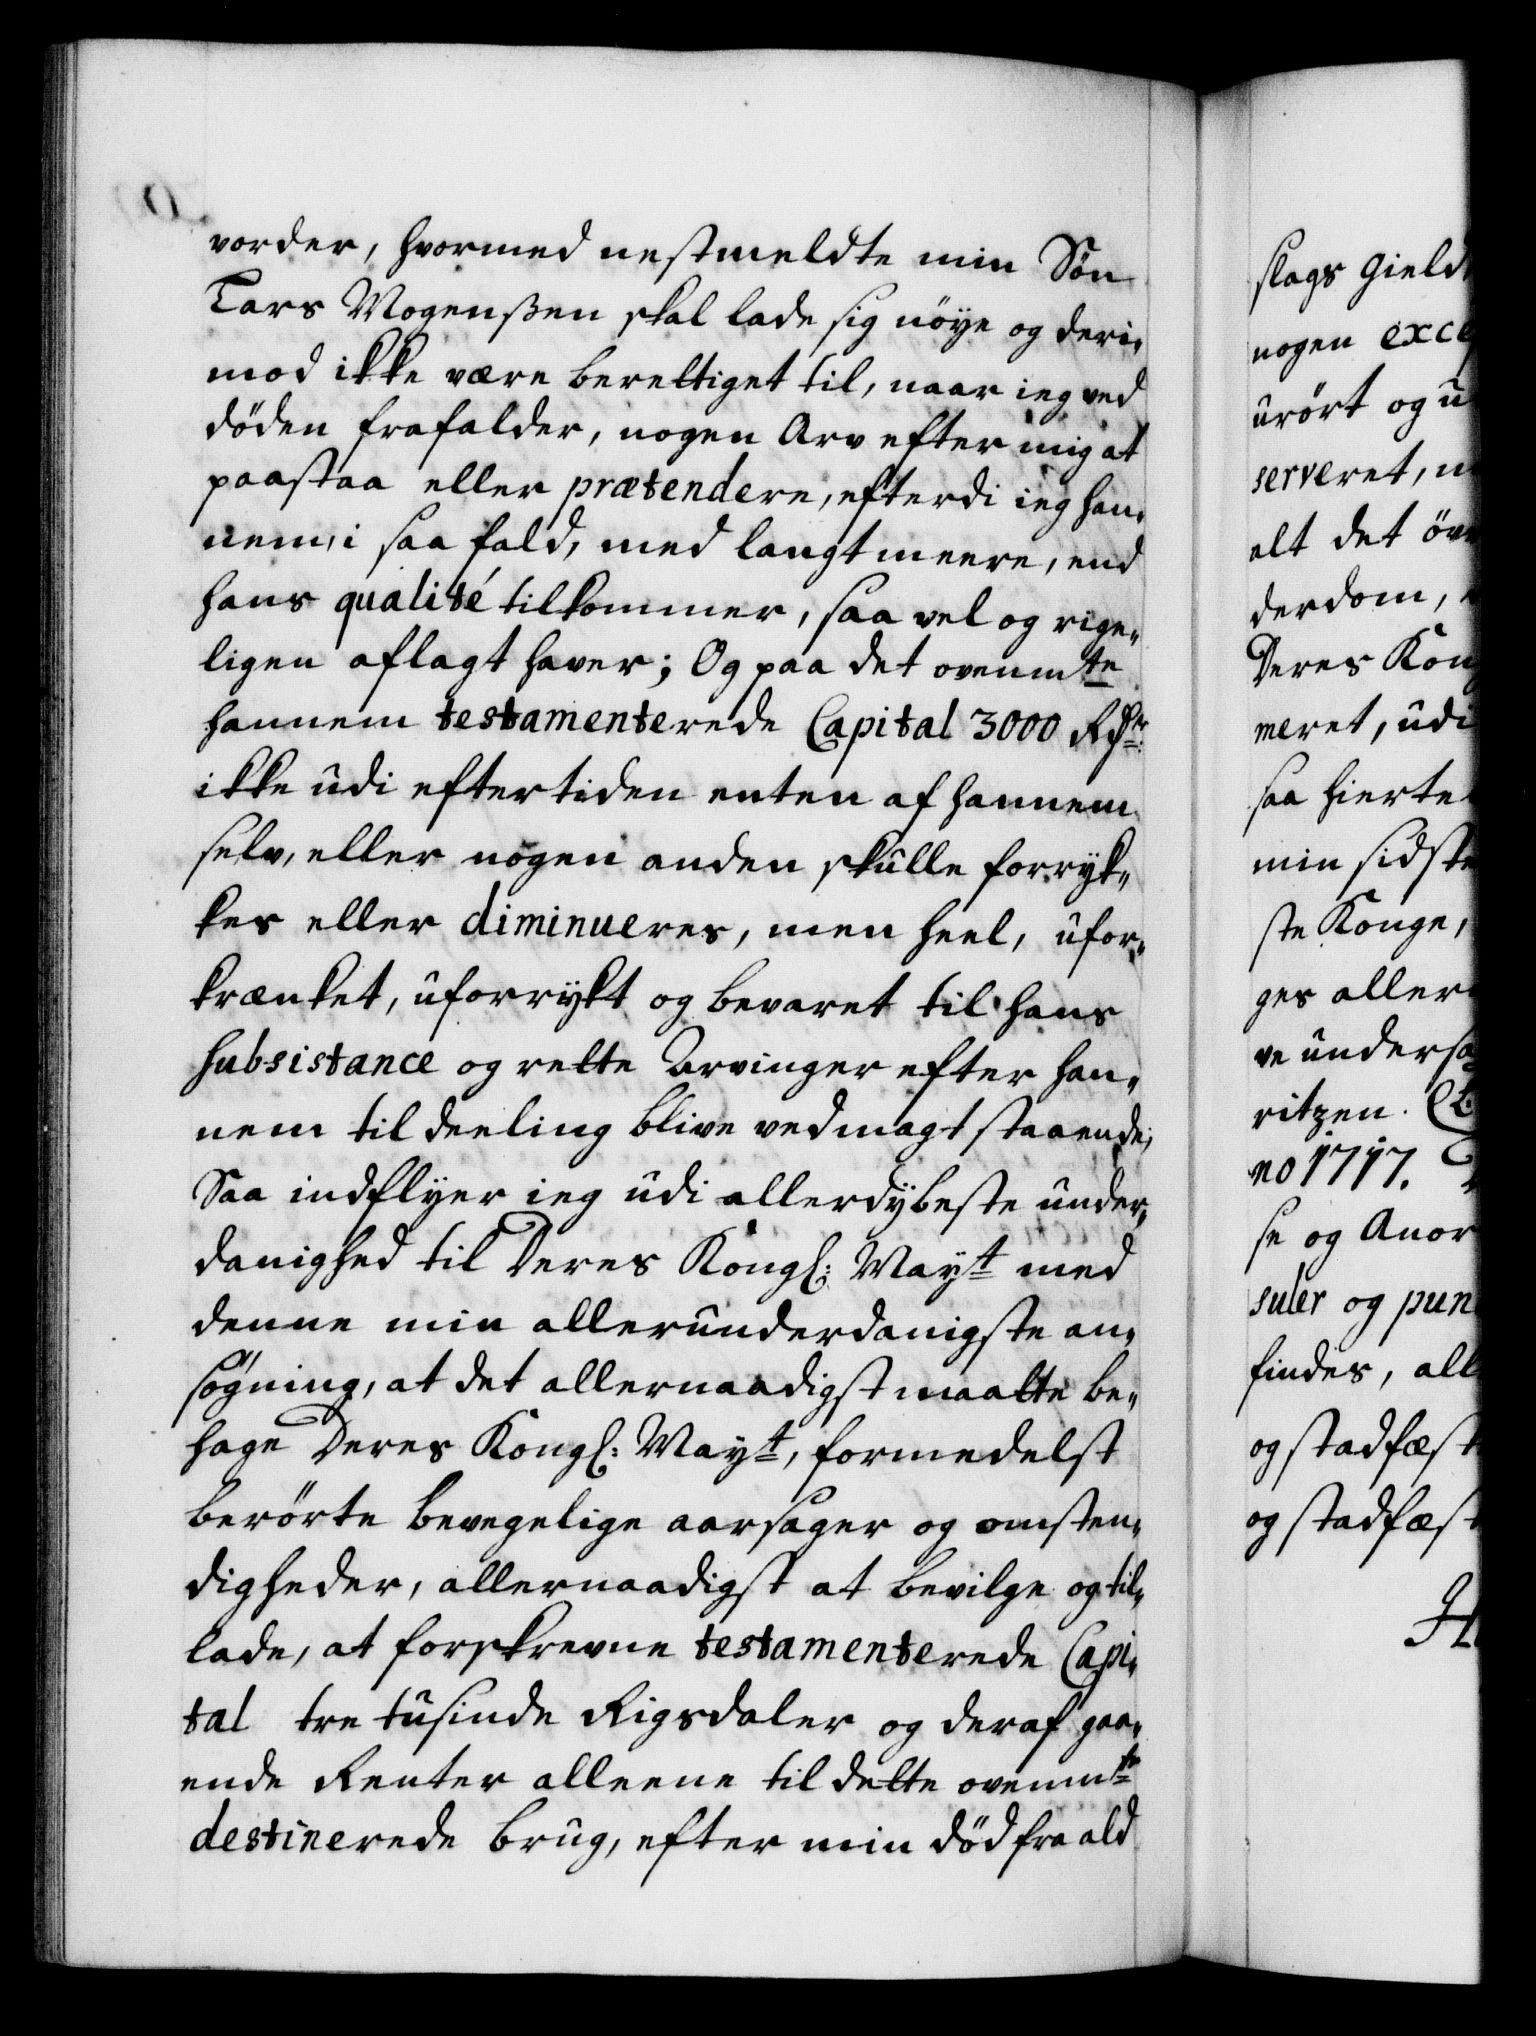 vorder, hvormed nestmeldte min Søn
Lars Mogenßen skal lade sig nöye og deri-
mod ikke være berettiget til, naar ieg ved
döden frafalder, nogen Arv efter mig at
paastaa eller prætendere, efterdi ieg han-
nem, i saa fald, med langt meere, end
hans qualité tilkommer, saa vel og rige-
ligen aflagt haver; Og paa det ovenmte
hannem testamenterede Capital 3000 Rdr:
ikke udi eftertiden enten af hannem
selv, eller nogen anden skulle forryk-
kes eller diminueres, men heel, ufor-
krænket, uforrykt og bevaret til hans
Subsistance og rette Arvinger efter han-
nem til deeling blive ved magt staaende;
Saa indflyer ieg udi allerdybeste under-
danighed til Deres Kongl: Mayt med
denne min allerunderdanigste an-
søgning, at det allernaadigst maatte be-
hage Deres Kongl: Mayt, formedelst
berörte bevegelige aarsager og omsten-
digheder, allernaadigst at bevilge og til-
lade, at forskrevne testamenterede Capi-
tal tre tusinde Rigsdaler og deraf gaa-
ende Renter alleene til dette ovenmte
destinerede brug, efter min död fra ald
slags Gield
nogen exce
urört og u
serveret, m
alt det öv
derdom,
Deres Kon
meret, udi
saa hierte
min sidste
ste Konge,
ges aller
ve undersa
ritzen.
no 1717.
se og Anor
suler og pun
findes, all
og stadfæst
og stadfæst